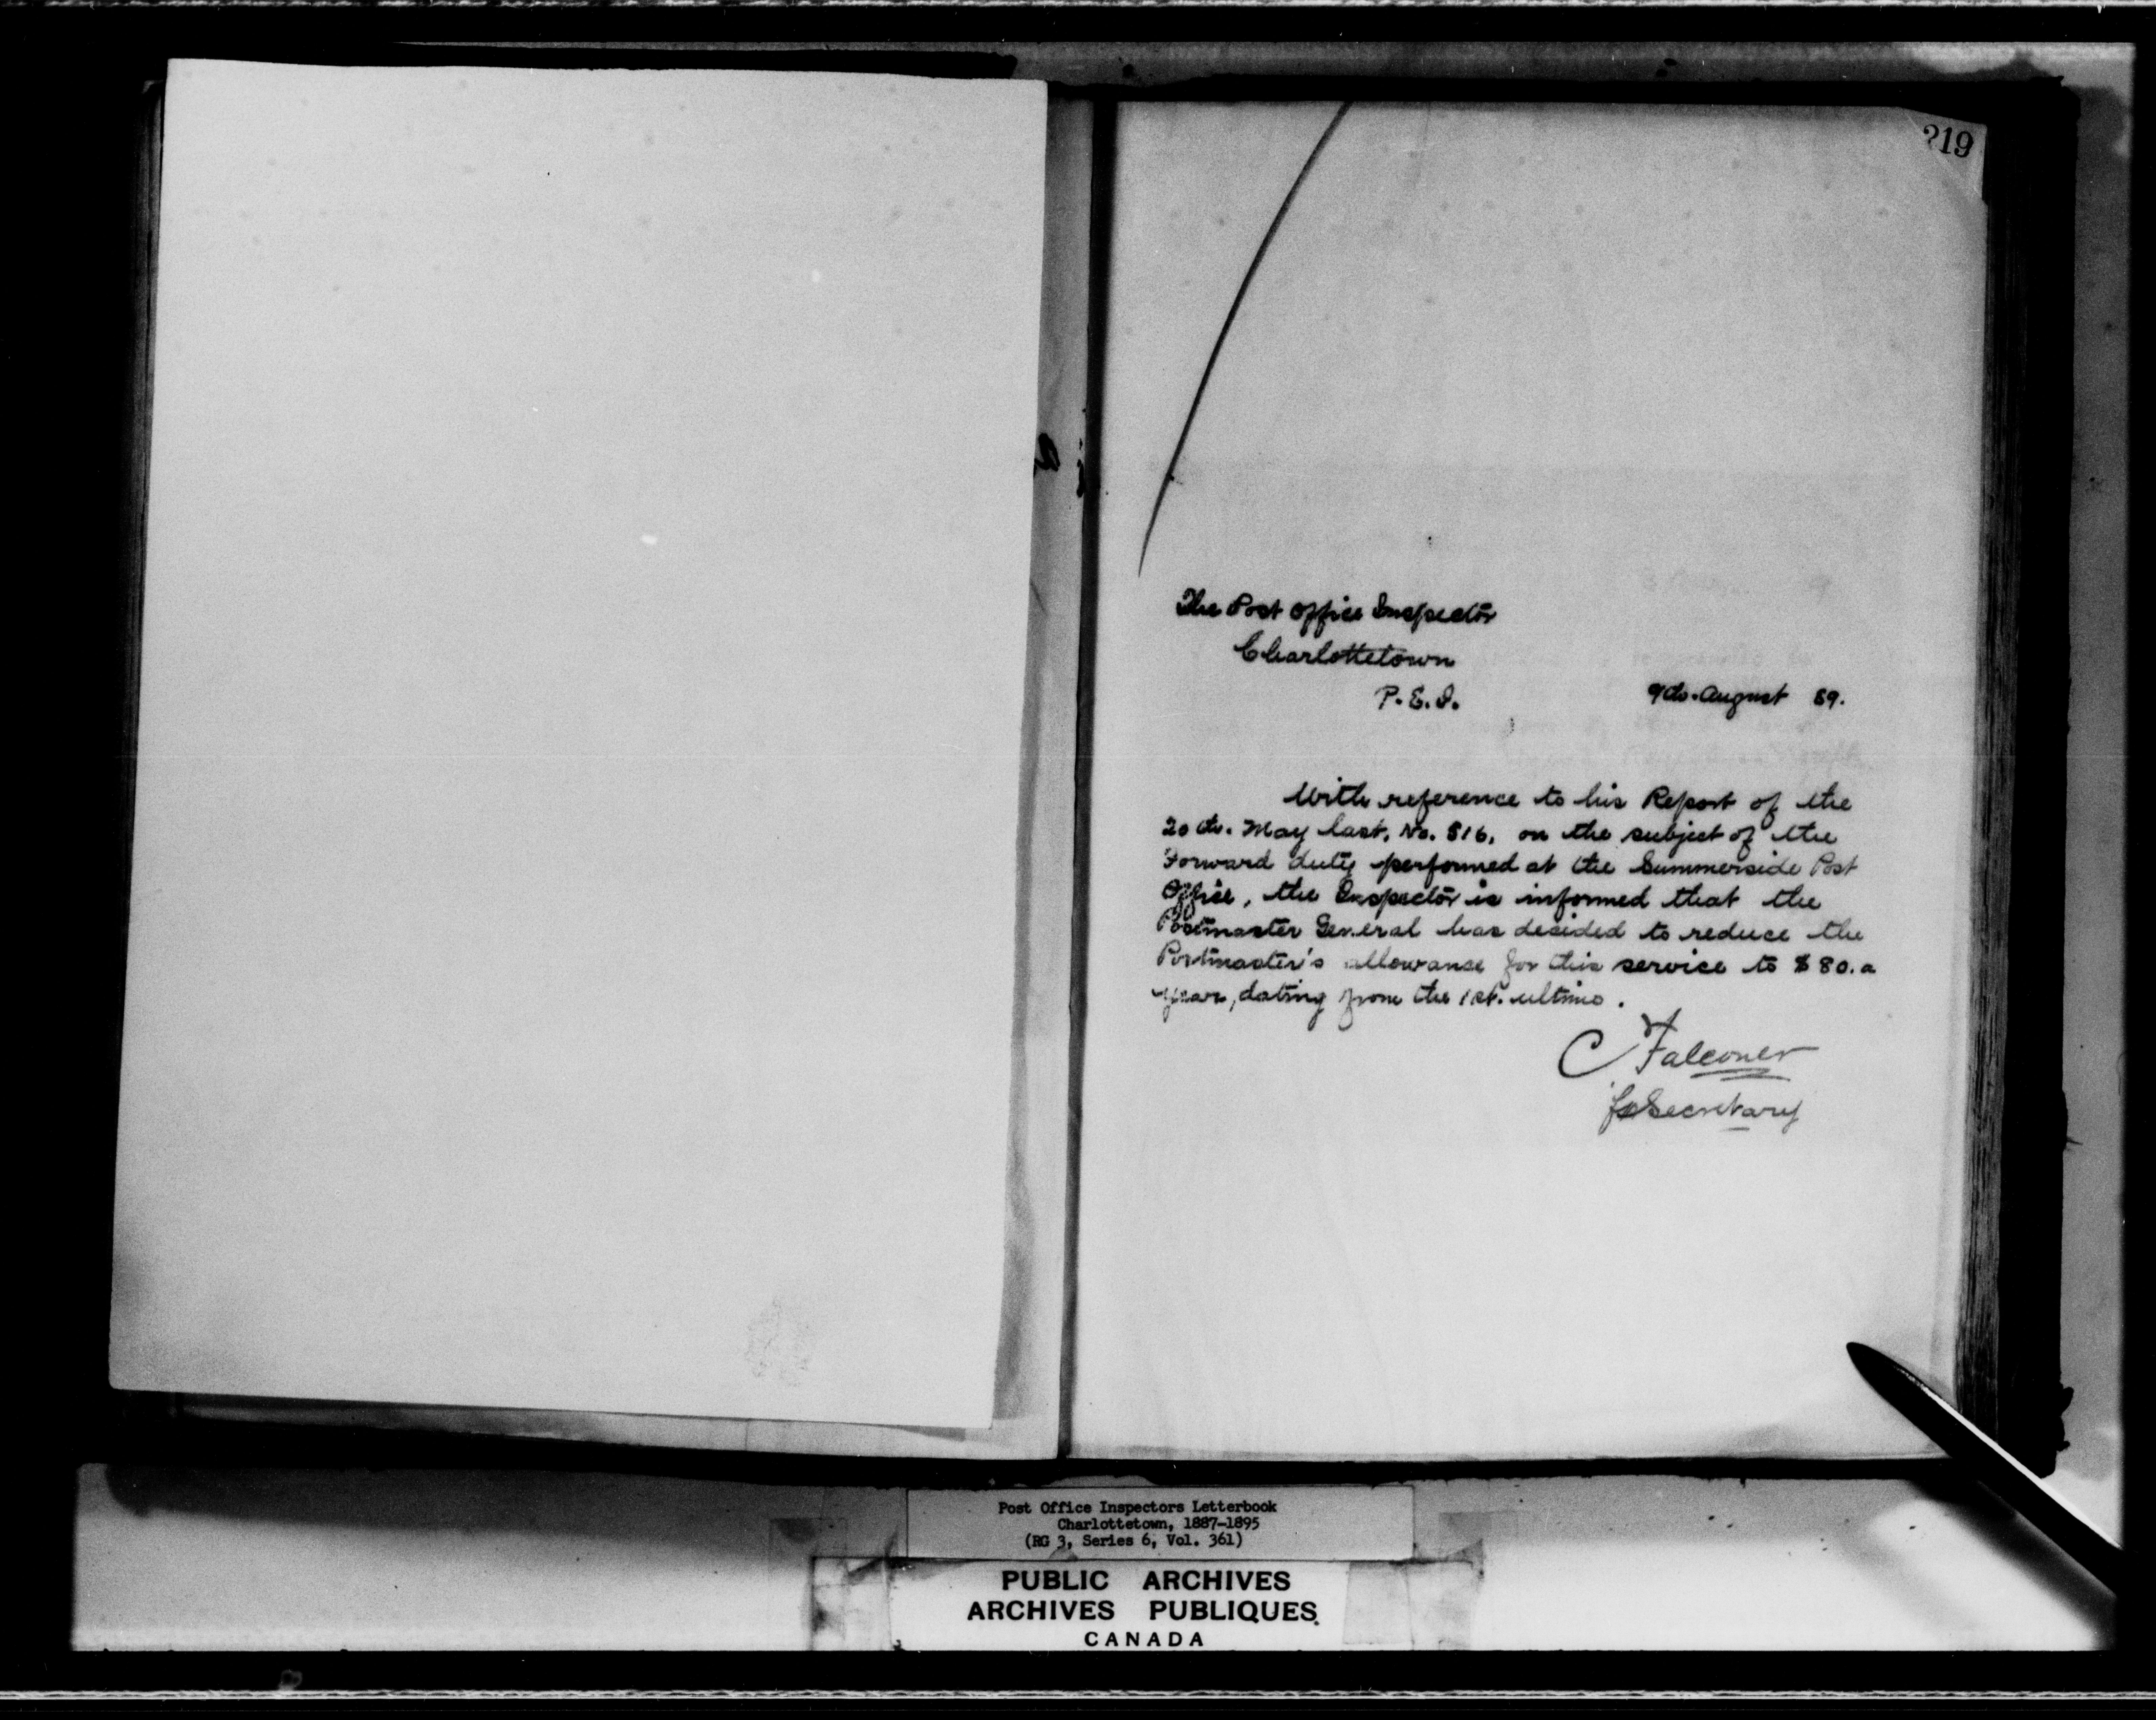 219
The Post Office Inspector
Charlottetown
P. E. I.
9th. August 89.
With reference to his Report of the
20th. May last, No. 516, on the subject of the
Forward duty performed at the Summerside Post
Office, the Inspector is informed that the
Postmaster General has decided to reduce the
Postmaster's allowance for this service to $80. a
year, dating from the 1st. ultimo.
C Falconer
for Secretary
Post Office Inspectors Letterbook
Charlottetown, 1887-1895
(RG 3, Series 6, Vol. 361)
PUBLIC ARCHIVES
ARCHIVES PUBLIQUES
CANADA